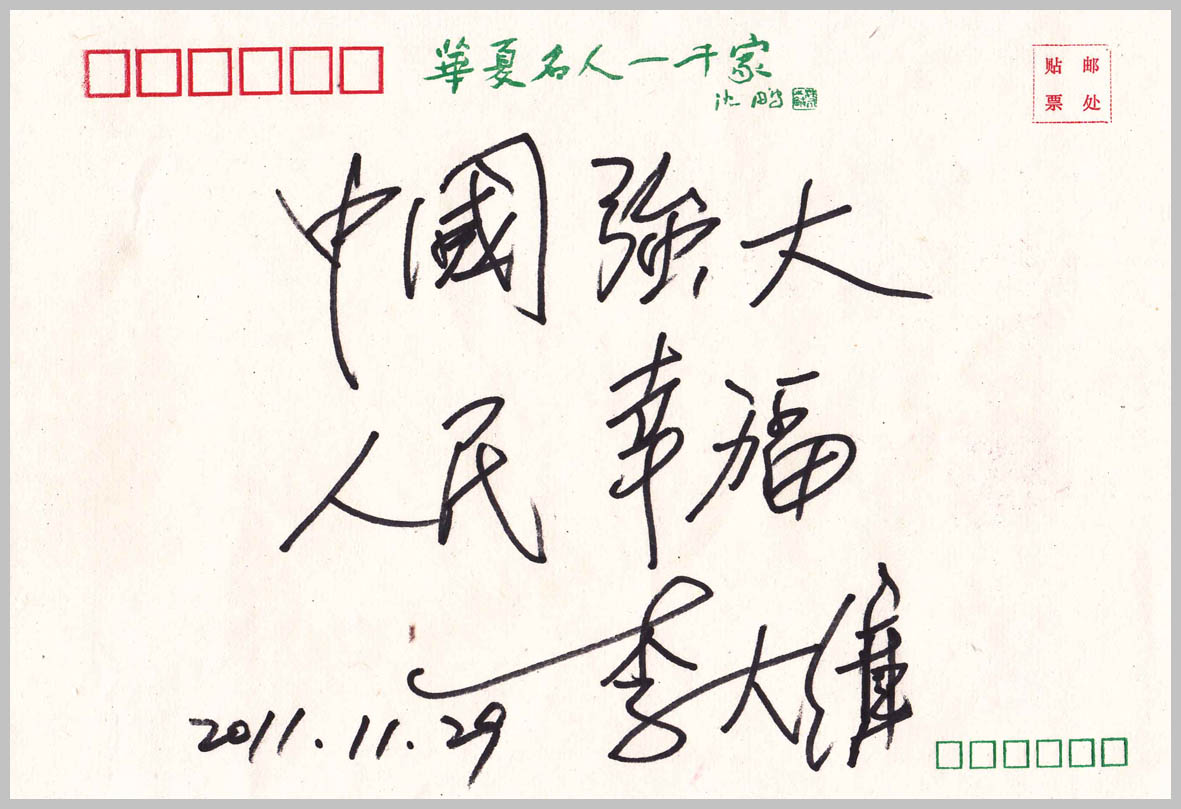 華夏名人一千家
沈鹏
贴 邮
票 处
中國 強大
人民 幸福
李大維
2011.11.29